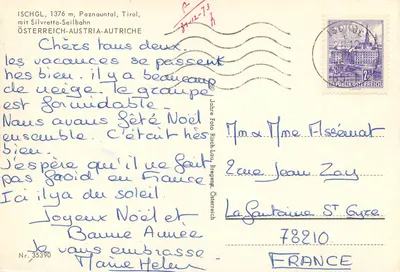 ISCHGL, 1376 m, Paznauntal, Tirol,
mit Silvretta-Seilbahn
ÖSTERREICH-AUSTRIA-AUTRICHE
Chers tous deux.
les vacances se passent
très bien. il y a beaucoup
de neige. le groupe
est formidable.
Nous avons fêté Noël
ensemble. C'était très
bien.
J'espère qu'il ne fait
pas froid en France
Ici il y a du soleil.
Joyeux Noël et
Bonne Année
Je vous embrasse
Marie Helen
Nr. 35390
Österreich
REPUBLIK ÖSTERREICH
M. & Mme Assémat
2 rue Jean Zay
La Fontaine St Cyre
78210
FRANCE